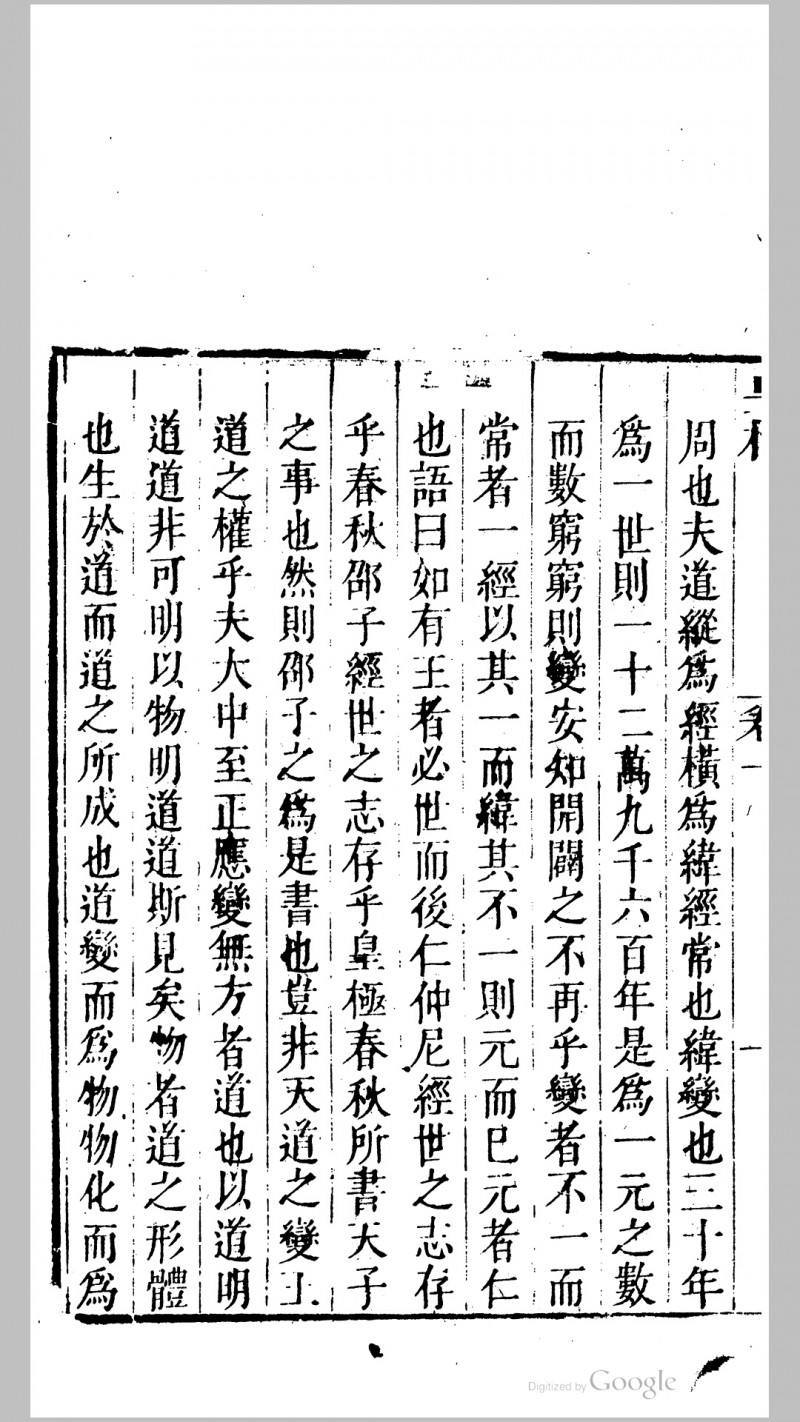 周也夫道縱爲經橫爲緯經常也緯變也三十年
爲一世則一十二萬九千六百年是爲一元之數
而數窮窮則變安知開闢之不再乎變者不一而
常者一經以其一而緯其不一則元而巳元者仁
也語曰如有王者必世而後仁仲尼經世之志存
乎春秋邵子經世之志存乎皇極春秋所書天子
之事也然則邵子之爲是書也豈非天道之變王
道之權乎夫大中至正應變無方者道也以道明
道道非可明以物明道道斯見矣物者道之形體
也生於道而道之所成也道變而爲物物化而爲
卷一
一
Digitized by Google